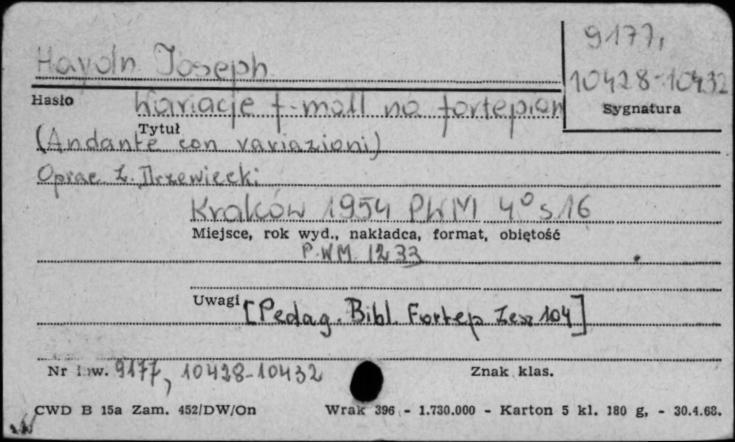 Haydn Joseph
9177,
10428-10432
Hasło
Sygnatura
Wariacje f-moll na fortepian
Tytuł
(Andante con variazioni)
Oprac Z. Drzewiecki
Kraków 1954 PWM 4° s 16
Miejsce, rok wyd., nakładca, format, obiętość
P.WM. 1233
Uwagi [Pedag. Bibl. Fortep Zesz 104]
Nr inw. 9177, 10428-10432
Znak klas.
CWD B 15a Zam. 452/DW/On
Wrak 396 - 1.730.000 - Karton 5 kl. 180 g, - 30.4.68.